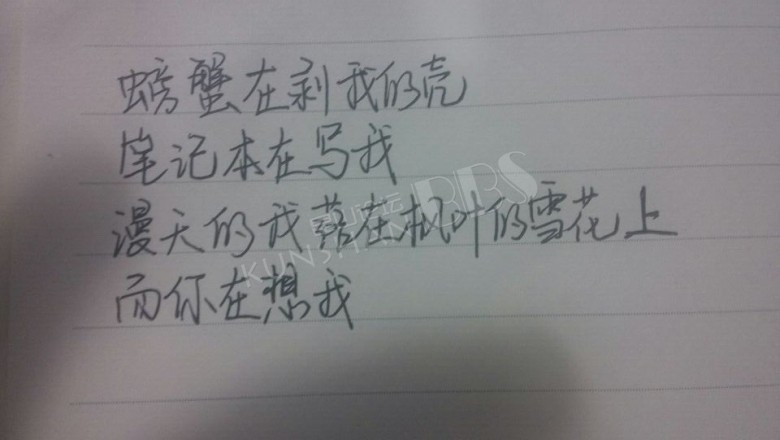 螃蟹在剥我的壳
笔记本在写我
漫天的我落在枫叶的雪花上
而你在想我
KUNSHAN BBS